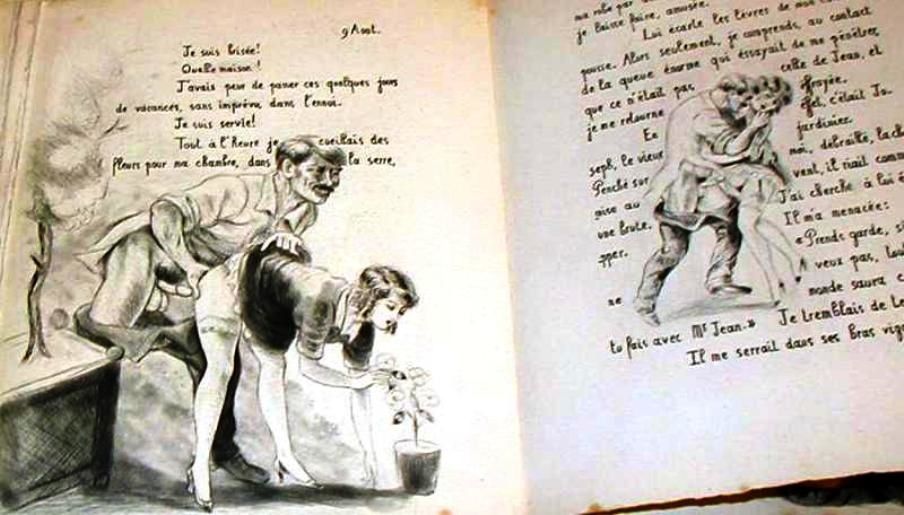 9 Août.
Je suis brisée!
Quelle maison!
J'avais peur de passer ces quelques jours
de vacances, sans imprévu, dans l'ennui.
Je suis servie!
Tout à l'heure je cueillais des
fleurs pour ma chambre, dans la serre,
ma robe par
je laisse faire, amusée.
Lui écarte les lèvres de mon
pousse. Alors seulement, je comprends, au contact
de la queue énorme qui essayait de me pénétrer,
que ce n'était pas celle de Jean, et
je me retourne effrayée.
En effet, c'était Jo-
seph, le vieux jardinier.
Penché sur moi, débraillé,
vent, il riait comm
aise au J'ai cherché à lui é
une brute. Il m'a menacée:
pper. « Prends garde, si
ne veux pas, tout
monde saura c
tu fais avec Mr Jean. » Je tremblais de
Il me serrait dans ses bras vig